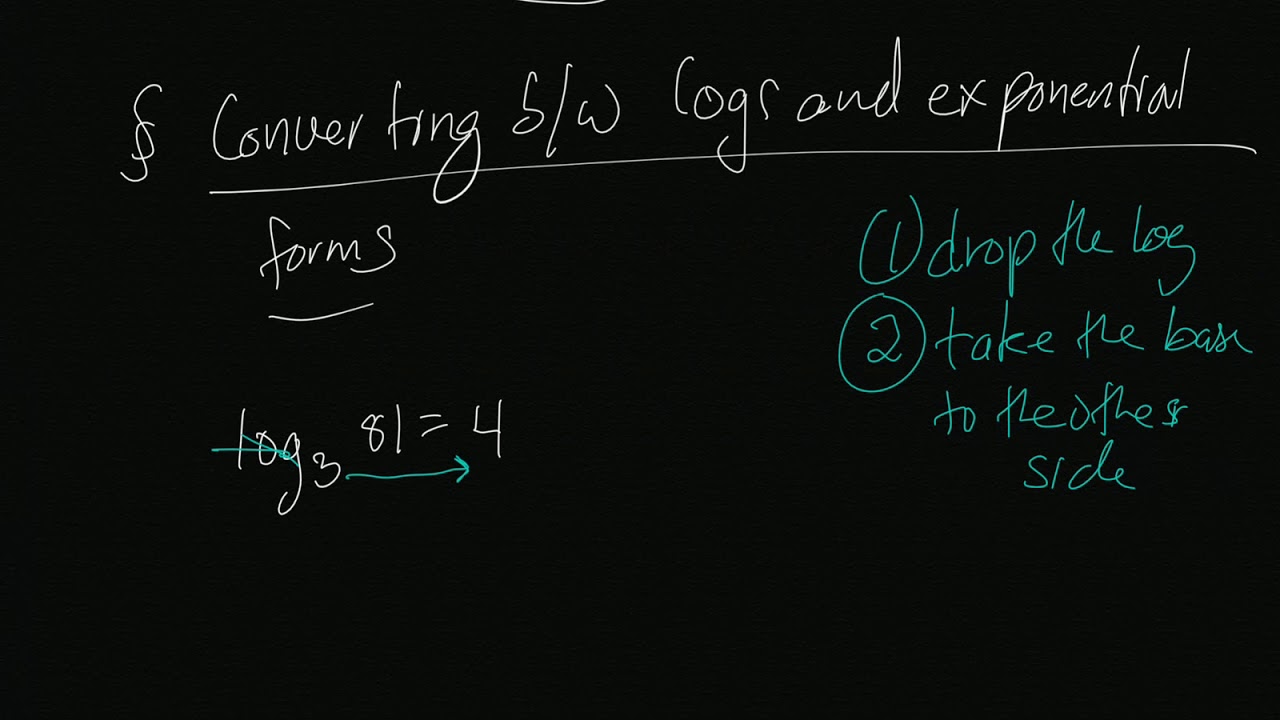 § Converting b/w logs and exponential
forms
(1) drop the log
(2) take the base
to the other
side
log₃ 81 = 4